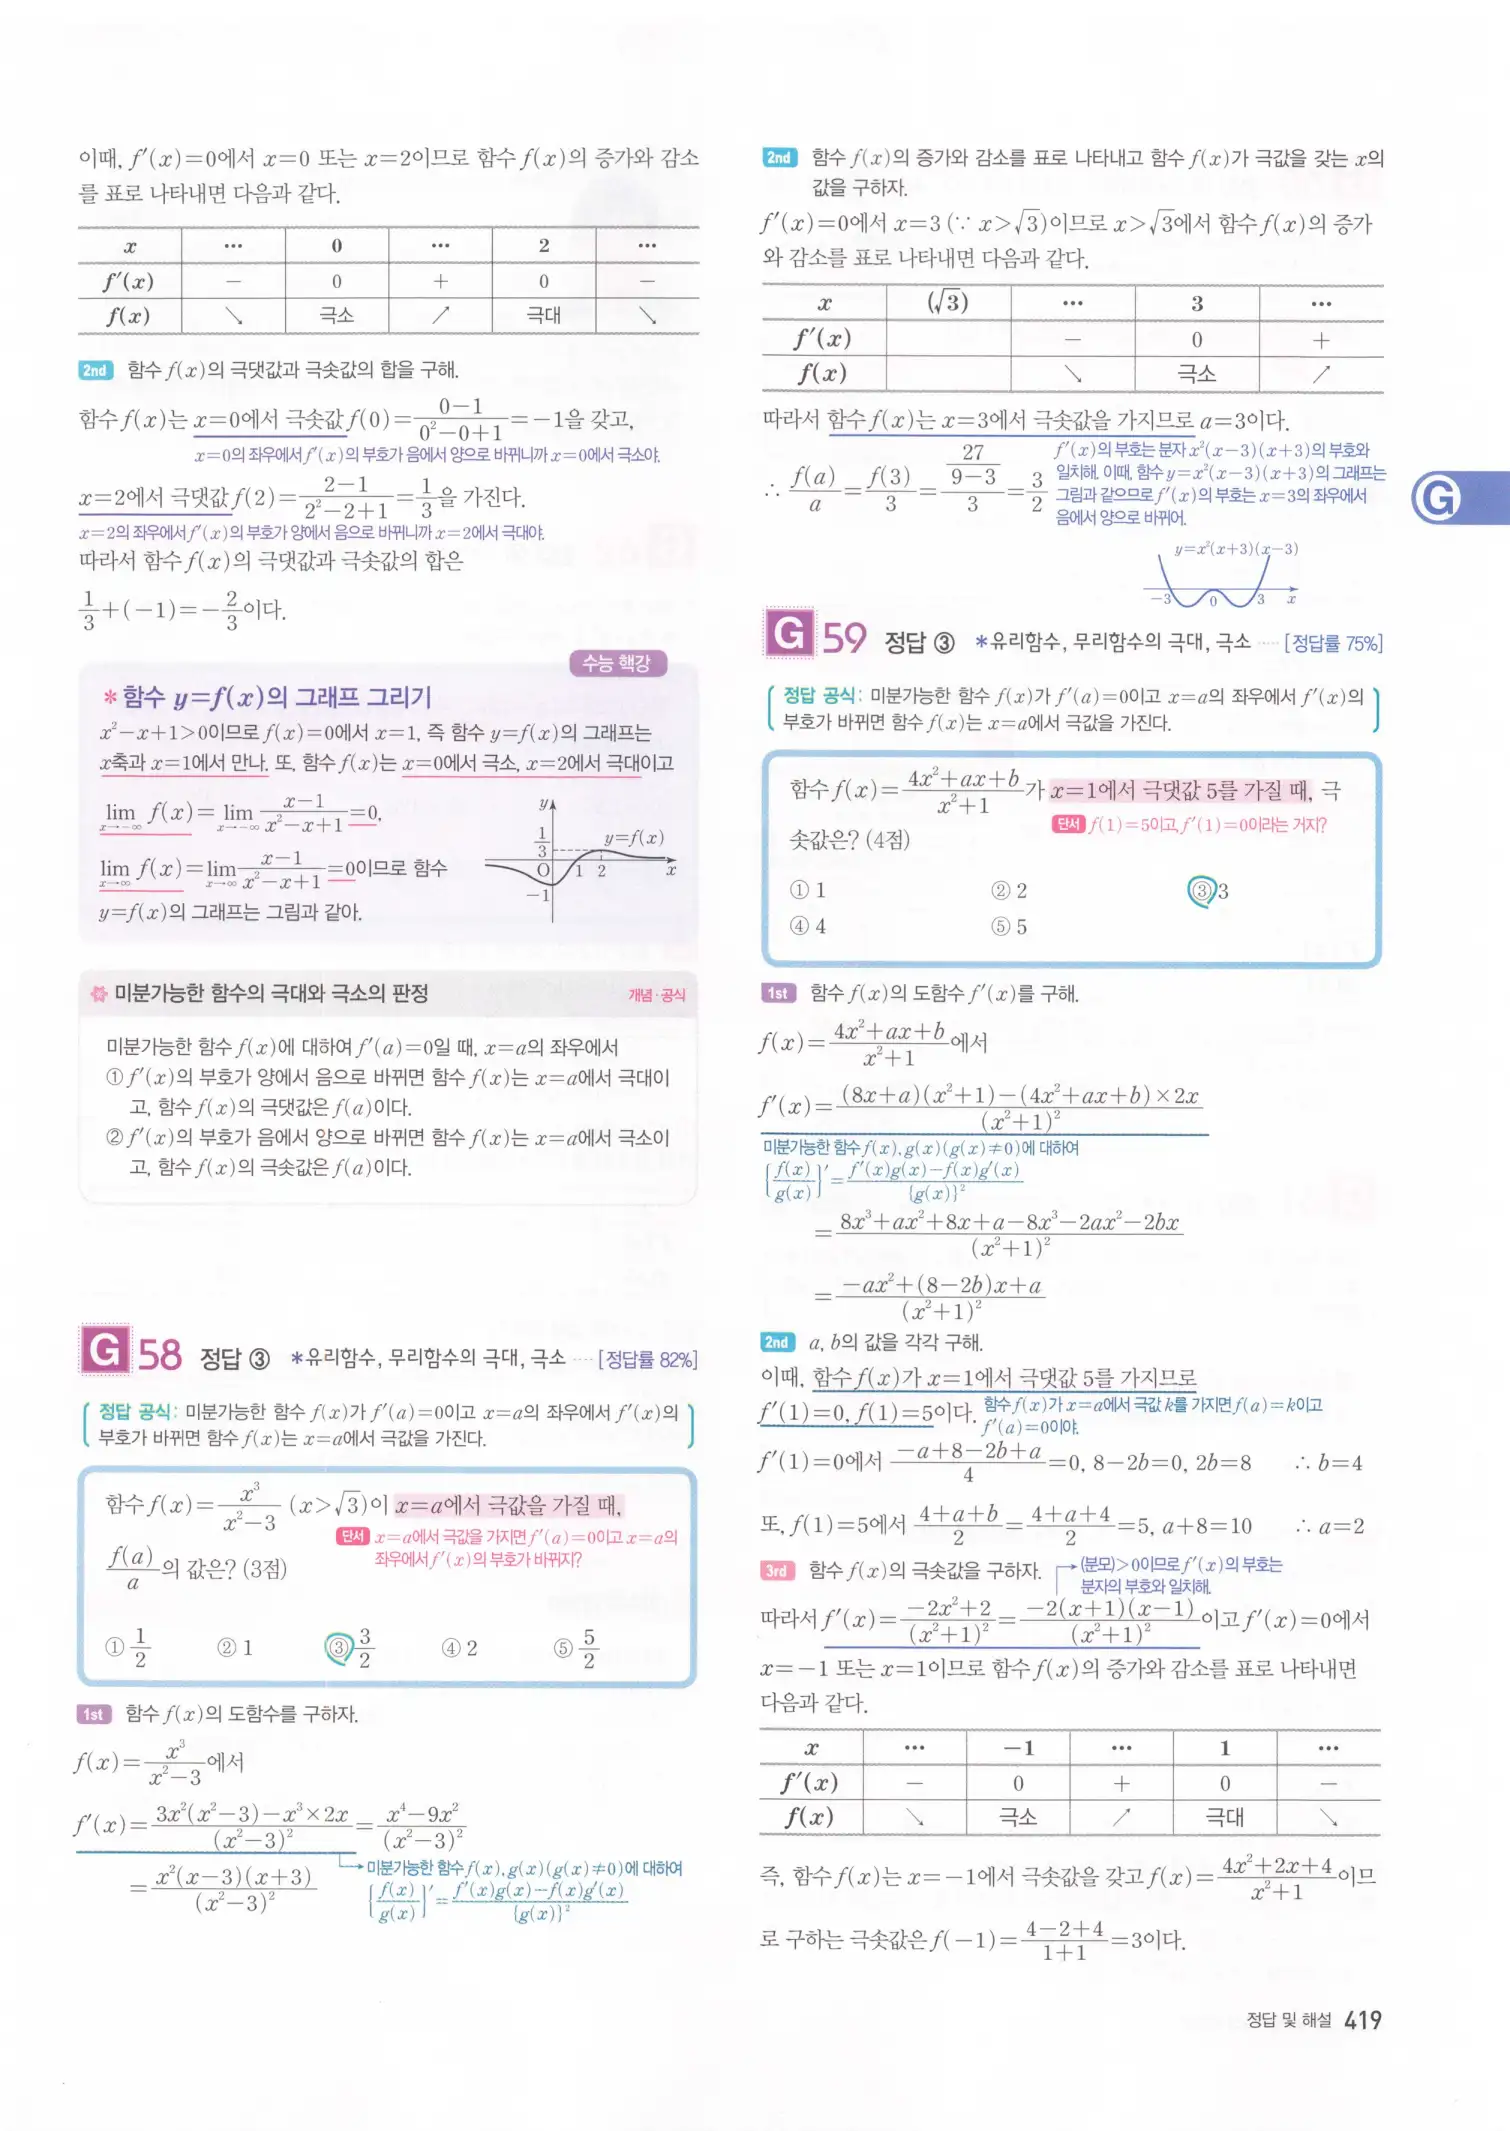 이때, f′(x)=0에서 x=0 또는 x=2이므로 함수 f(x)의 증가와 감소
를 표로 나타내면 다음과 같다.
x ⋯ 0 ⋯ 2 ⋯
f′(x) − 0 + 0 −
f(x) ↘ 극소 ↗ 극대 ↘
2nd 함수 f(x)의 극댓값과 극솟값의 합을 구해.
함수 f(x)는 x=0에서 극솟값 f(0)=(0−1)/(0²−0+1)=−1을 갖고,
x=0의 좌우에서 f′(x)의 부호가 음에서 양으로 바뀌니까 x=0에서 극소야.
x=2에서 극댓값 f(2)=(2−1)/(2²−2+1)=1/3을 가진다.
x=2의 좌우에서 f′(x)의 부호가 양에서 음으로 바뀌니까 x=2에서 극대야.
따라서 함수 f(x)의 극댓값과 극솟값의 합은
1/3+(−1)=−2/3이다.
수능 핵강
*함수 y=f(x)의 그래프 그리기
x²−x+1>0이므로 f(x)=0에서 x=1, 즉 함수 y=f(x)의 그래프는
x축과 x=1에서 만나. 또, 함수 f(x)는 x=0에서 극소, x=2에서 극대이고
lim x→−∞ f(x)=lim x→−∞ (x−1)/(x²−x+1)=0,
lim x→∞ f(x)=lim x→∞ (x−1)/(x²−x+1)=0이므로 함수
y=f(x)의 그래프는 그림과 같아.
y
1/3 y=f(x)
O 1 2 x
−1
미분가능한 함수의 극대와 극소의 판정 개념·공식
미분가능한 함수 f(x)에 대하여 f′(a)=0일 때, x=a의 좌우에서
① f′(x)의 부호가 양에서 음으로 바뀌면 함수 f(x)는 x=a에서 극대이
고, 함수 f(x)의 극댓값은 f(a)이다.
② f′(x)의 부호가 음에서 양으로 바뀌면 함수 f(x)는 x=a에서 극소이
고, 함수 f(x)의 극솟값은 f(a)이다.
G 58 정답 ③ *유리함수, 무리함수의 극대, 극소 ···· [정답률 82%]
정답 공식: 미분가능한 함수 f(x)가 f′(a)=0이고 x=a의 좌우에서 f′(x)의
부호가 바뀌면 함수 f(x)는 x=a에서 극값을 가진다.
함수 f(x)=x³/(x²−3) (x>√3)이 x=a에서 극값을 가질 때,
단서 x=a에서 극값을 가지면 f′(a)=0이고 x=a의
좌우에서 f′(x)의 부호가 바뀌지?
f(a)/a의 값은? (3점)
① 1/2 ② 1 ③ 3/2 ④ 2 ⑤ 5/2
1st 함수 f(x)의 도함수를 구하자.
f(x)=x³/(x²−3)에서
f′(x)=(3x²(x²−3)−x³×2x)/(x²−3)²=(x⁴−9x²)/(x²−3)²
=x²(x−3)(x+3)/(x²−3)²
미분가능한 함수 f(x), g(x)(g(x)≠0)에 대하여
{f(x)/g(x)}′=(f′(x)g(x)−f(x)g′(x))/{g(x)}²
2nd 함수 f(x)의 증가와 감소를 표로 나타내고 함수 f(x)가 극값을 갖는 x의
값을 구하자.
f′(x)=0에서 x=3 (∵ x>√3)이므로 x>√3에서 함수 f(x)의 증가
와 감소를 표로 나타내면 다음과 같다.
x (√3) ⋯ 3 ⋯
f′(x) − 0 +
f(x) ↘ 극소 ↗
따라서 함수 f(x)는 x=3에서 극솟값을 가지므로 a=3이다.
∴ f(a)/a=f(3)/3=(27/(9−3))/3=3/2
f′(x)의 부호는 분자 x²(x−3)(x+3)의 부호와
일치해. 이때, 함수 y=x²(x−3)(x+3)의 그래프는
그림과 같으므로 f′(x)의 부호는 x=3의 좌우에서
음에서 양으로 바뀌어.
y=x²(x+3)(x−3)
−3 0 3 x
G
G 59 정답 ③ *유리함수, 무리함수의 극대, 극소 ···· [정답률 75%]
정답 공식: 미분가능한 함수 f(x)가 f′(a)=0이고 x=a의 좌우에서 f′(x)의
부호가 바뀌면 함수 f(x)는 x=a에서 극값을 가진다.
함수 f(x)=(4x²+ax+b)/(x²+1)가 x=1에서 극댓값 5를 가질 때, 극
단서 f(1)=5이고, f′(1)=0이라는 거지?
솟값은? (4점)
① 1 ② 2 ③ 3
④ 4 ⑤ 5
1st 함수 f(x)의 도함수 f′(x)를 구해.
f(x)=(4x²+ax+b)/(x²+1)에서
f′(x)=((8x+a)(x²+1)−(4x²+ax+b)×2x)/(x²+1)²
미분가능한 함수 f(x), g(x)(g(x)≠0)에 대하여
{f(x)/g(x)}′=(f′(x)g(x)−f(x)g′(x))/{g(x)}²
=(8x³+ax²+8x+a−8x³−2ax²−2bx)/(x²+1)²
=(−ax²+(8−2b)x+a)/(x²+1)²
2nd a, b의 값을 각각 구해.
이때, 함수 f(x)가 x=1에서 극댓값 5를 가지므로
f′(1)=0, f(1)=5이다. 함수 f(x)가 x=a에서 극값 k를 가지면 f(a)=k이고
f′(a)=0이야.
f′(1)=0에서 (−a+8−2b+a)/4=0, 8−2b=0, 2b=8 ∴ b=4
또, f(1)=5에서 (4+a+b)/2=(4+a+4)/2=5, a+8=10 ∴ a=2
3rd 함수 f(x)의 극솟값을 구하자. (분모)>0이므로 f′(x)의 부호는
분자의 부호와 일치해.
따라서 f′(x)=(−2x²+2)/(x²+1)²=−2(x+1)(x−1)/(x²+1)²이고 f′(x)=0에서
x=−1 또는 x=1이므로 함수 f(x)의 증가와 감소를 표로 나타내면
다음과 같다.
x ⋯ −1 ⋯ 1 ⋯
f′(x) − 0 + 0 −
f(x) ↘ 극소 ↗ 극대 ↘
즉, 함수 f(x)는 x=−1에서 극솟값을 갖고 f(x)=(4x²+2x+4)/(x²+1)이므
로 구하는 극솟값은 f(−1)=(4−2+4)/(1+1)=3이다.
정답 및 해설 419